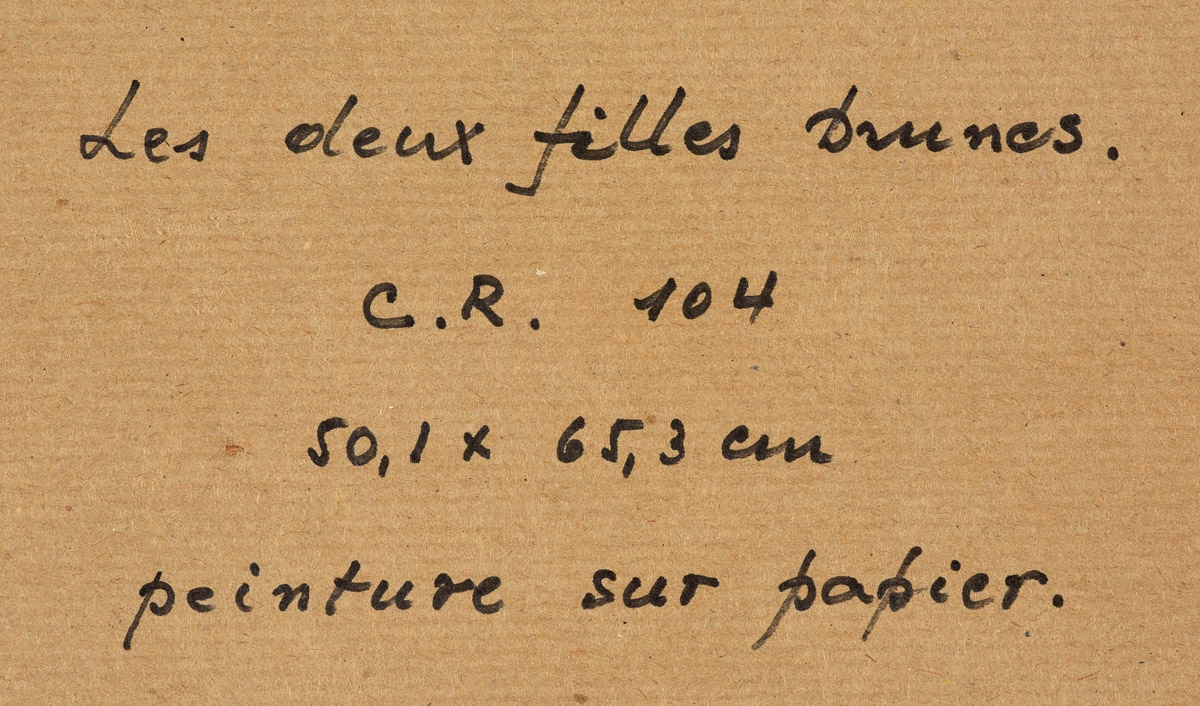 Les deux filles brunes.
C.R. 104
50,1 x 65,3 cm
peinture sur papier.